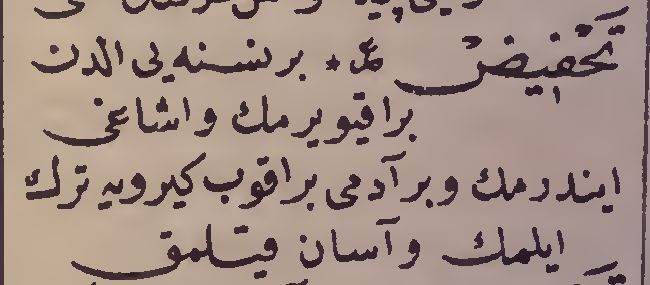 تَخْفِيضْ ع * بر نسنه يى الدن
براقيويرمك و اشاغى
ايندرمك و بر آدمى براقوب كيرويه ترك
ايلمك و آسان قيتلمق